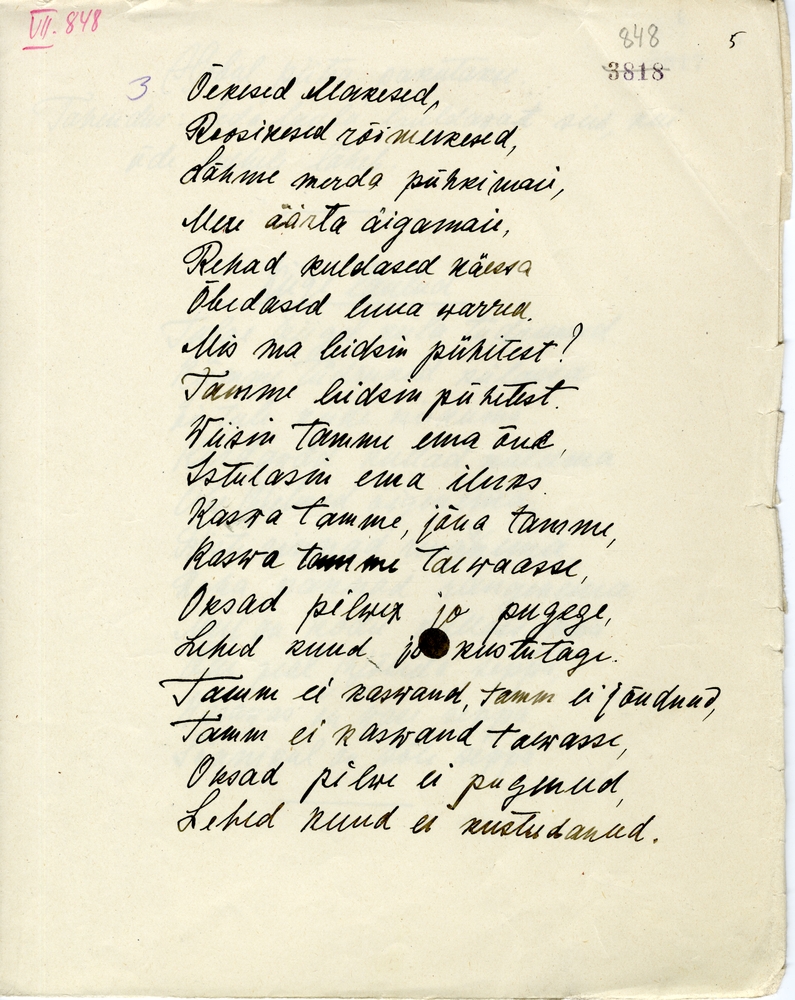 VII. 848
848
5
3818
3 Õekesed Maikesed,
Roosikesed rõimukesed,
Lähme merda pühkimaie,
Mere äärta äigamaie,
Rehad kuldased käessa
Õbedased luua warred.
Mis ma leidsin pühitest?
Tamme leidsin pühetest.
Wiisin tamme ema õue,
Istutasin ema iluks.
Kaswa tamme, jõua tamme,
Kaswa tamme taewaasse,
Oksad pilwex jo pugege,
Lehed kuud jo kustutage.
Tamm ei kaswand, tamm ei jõudnud,
Tamm ei kaswand taewasse,
Oksad pilwe ei pugenud,
Lehed kuud ei kustudanud.